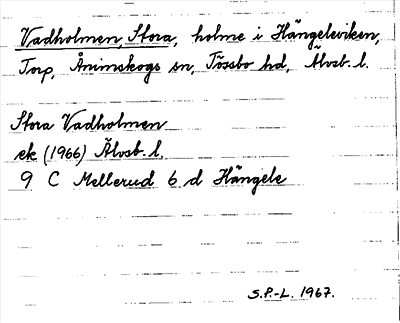 Vadholmen, Stora, holme i Hängeleviken,
Torp, Ånimskogs sn, Tössbo hd, Älvsb. l.
Stora Vadholmen
ek (1966) Älvsb. l.
9 C Mellerud 6 d Hängele
S.P.-L. 1967.